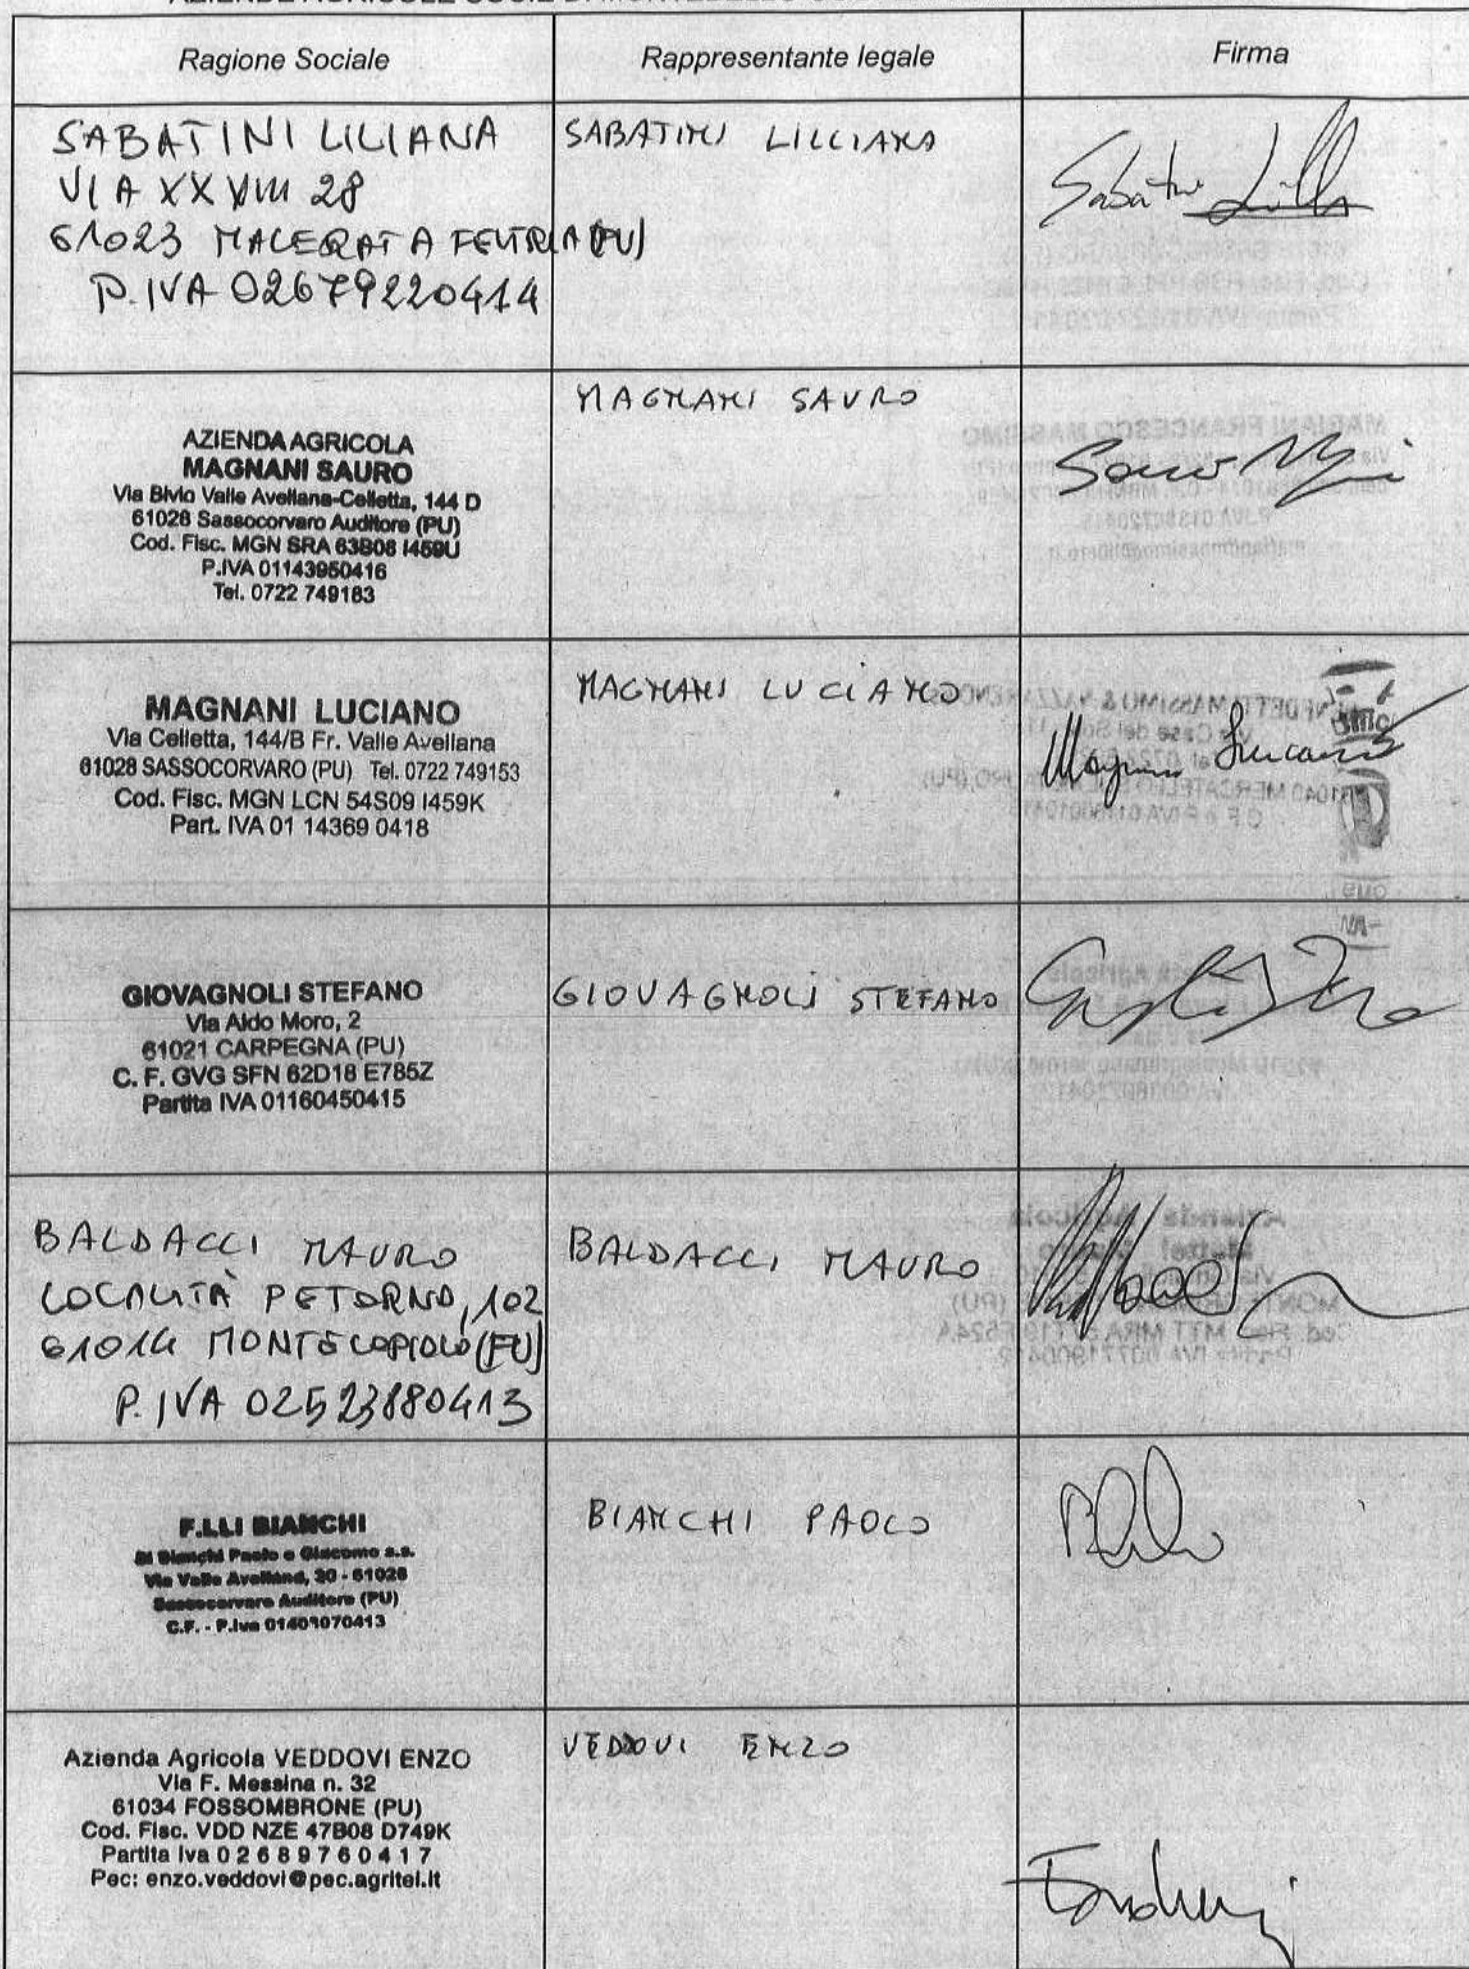 Ragione Sociale
Rappresentante legale
Firma
SABATINI LILIANA
VIA XXVIII 28
61023 MACERATA FELTRIA (PU)
P.IVA 02679220414
SABATINI LILLIANA
AZIENDA AGRICOLA
MAGNANI SAURO
Via Bivio Valle Avellana-Celletta, 144 D
61028 Sassocorvaro Auditore (PU)
Cod. Fisc. MGN SRA 63B08 I459U
P.IVA 01143950416
Tel. 0722 749183
MAGNANI SAURO
MAGNANI LUCIANO
Via Celletta, 144/B Fr. Valle Avellana
61028 SASSOCORVARO (PU) Tel. 0722 749153
Cod. Fisc. MGN LCN 54S09 I459K
Part. IVA 01 14369 0418
MAGNANI LUCIANO
GIOVAGNOLI STEFANO
Via Aldo Moro, 2
61021 CARPEGNA (PU)
C. F. GVG SFN 62D18 E785Z
Partita IVA 01160450415
GIOVAGNOLI STEFANO
BALDACCI MAURO
LOCALITÀ PETORNO, 102
61014 MONTECOPIOLO (PU)
P. IVA 02523880413
BALDACCI MAURO
F.LLI BIANCHI
Di Bianchi Paolo e Giacomo s.s.
Via Valle Avellana, 30 - 61028
Sassocorvaro Auditore (PU)
C.F. - P.Iva 01403070413
BIANCHI PAOLO
Azienda Agricola VEDDOVI ENZO
Via F. Messina n. 32
61034 FOSSOMBRONE (PU)
Cod. Fisc. VDD NZE 47B08 D749K
Partita Iva 0 2 6 8 9 7 6 0 4 1 7
Pec: enzo.veddovi@pec.agritel.it
VEDDOVI ENZO